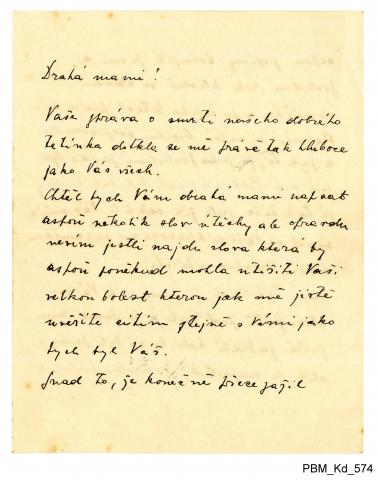 Drahá mami!
Vaše zpráva o smrti našeho dobrého
tetínka dotkla se mě právě tak hluboce
jako Vás všech.
Chtěl bych Vám drahá mami napsat
aspoň několik slov útěchy ale opravdu
nevím jestli najdu slova která by
aspoň poněkud mohla utišiti Vaši
velkou bolest kterou jak mě jistě
uvěříte cítím stejně s Vámi jako
bych byl Váš.
Snad to, že konečně přece zažil
PBM_Kd_574